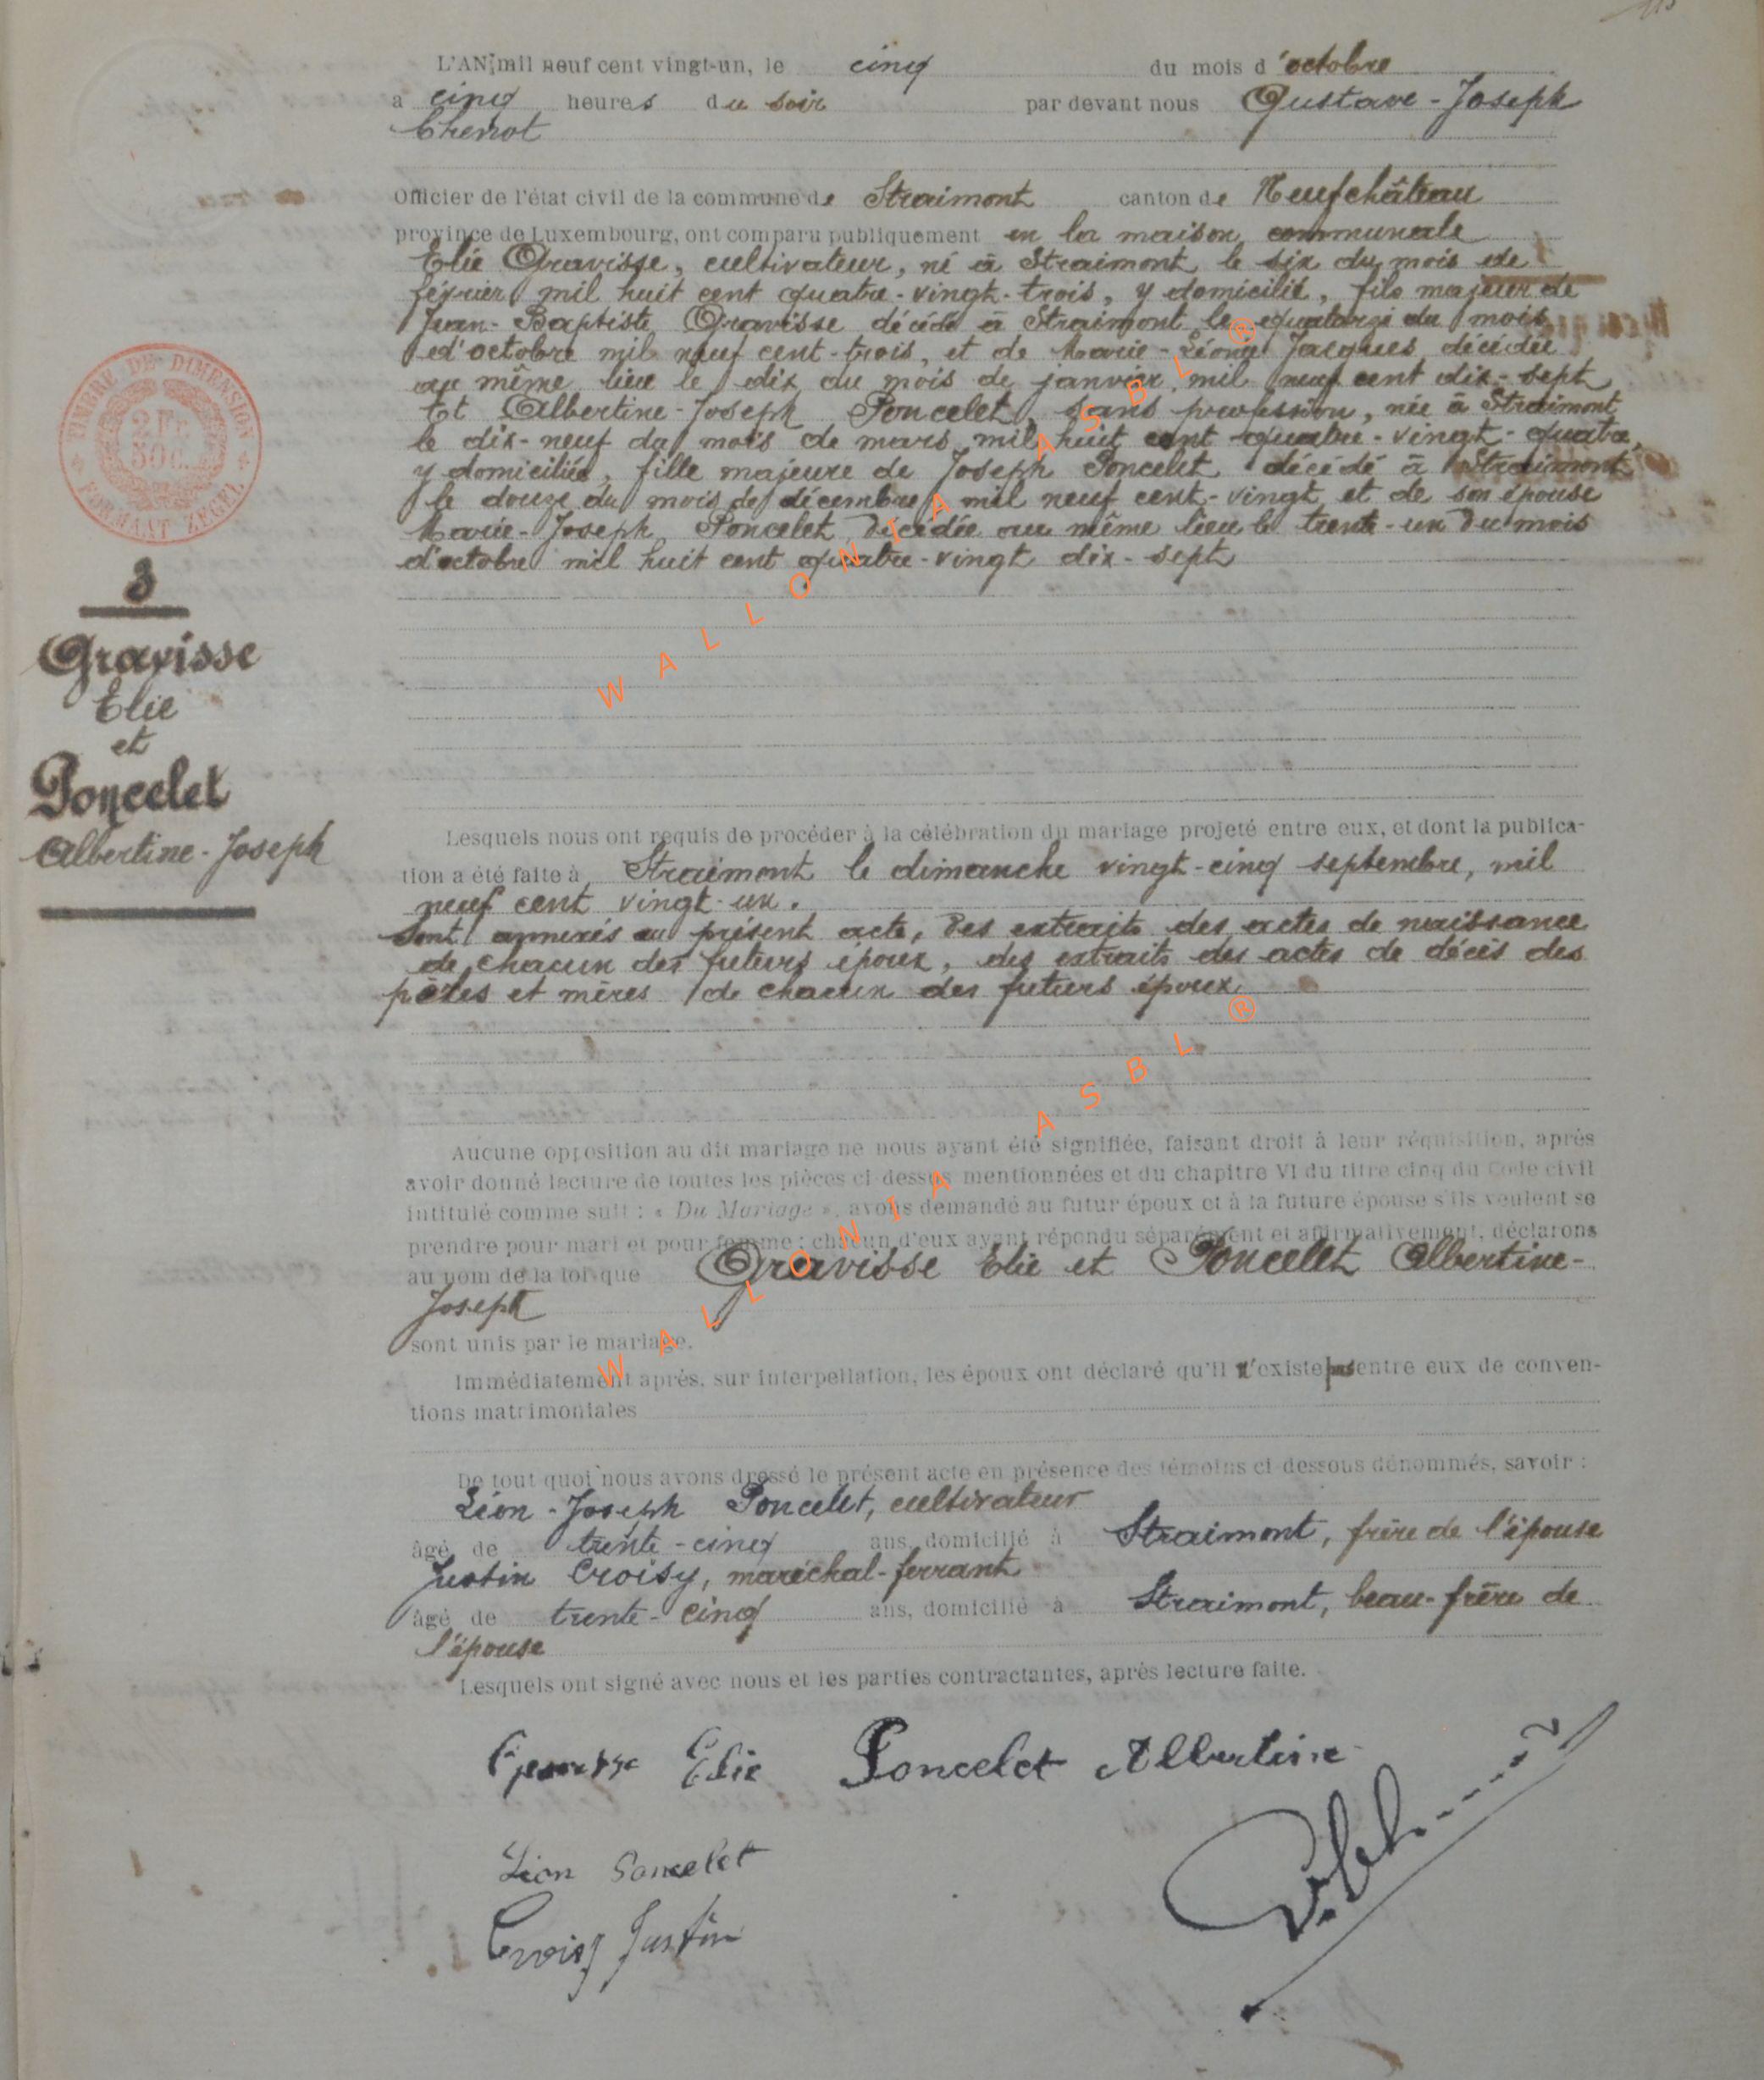 L'AN mil neuf cent vingt-un, le cinq du mois d'octobre
à cinq heures du soir par devant nous Gustave-Joseph
Chenot
Officier de l'état civil de la commune de Straimont canton de Neufchâteau
province de Luxembourg, ont comparu publiquement en la maison communale
Elie Gravisse, cultivateur, né à Straimont le six du mois de
février mil huit cent quatre-vingt-trois, y domicilié, fils majeur de
Jean-Baptiste Gravisse décédé à Straimont le quatorze du mois
d'octobre mil neuf cent-trois, et de Marie-Léonie Jacques décédée
au même lieu le dix du mois de janvier mil neuf cent dix-sept
Et Albertine-Joseph Poncelet, sans profession, née à Straimont
le dix-neuf du mois de mars mil huit cent quatre-vingt-quatre,
y domiciliée, fille majeure de Joseph Poncelet décédé à Straimont
le douze du mois de décembre mil neuf cent-vingt et de son épouse
Marie-Joseph Poncelet décédée au même lieu le trente-un du mois
d'octobre mil huit cent quatre-vingt dix-sept
TIMBRE DE DIMENSION
2 Fr.
50 C.
FORMAAT ZEGEL
3
Gravisse
Elie
et
Poncelet
Albertine-Joseph
Lesquels nous ont requis de procéder à la célébration du mariage projeté entre eux, et dont la publica-
tion a été faite à Straimont le dimanche vingt-cinq septembre, mil
neuf cent vingt-un.
Sont annexés au présent acte, des extraits des actes de naissance
de chacun des futurs époux, des extraits des actes de décès des
pères et mères de chacun des futurs époux
Aucune opposition au dit mariage ne nous ayant été signifiée, faisant droit à leur réquisition, après
avoir donné lecture de toutes les pièces ci-dessus mentionnées et du chapitre VI du titre cinq du Code civil
intitulé comme suit : « Du Mariage », avons demandé au futur époux et à la future épouse s'ils veulent se
prendre pour mari et pour femme ; chacun d'eux ayant répondu séparément et affirmativement, déclarons
au nom de la loi que Gravisse Elie et Poncelet Albertine-
Joseph
sont unis par le mariage.
Immédiatement après, sur interpellation, les époux ont déclaré qu'il n'existe pas entre eux de conven-
tions matrimoniales
De tout quoi nous avons dressé le présent acte en présence des témoins ci-dessous dénommés, savoir :
Léon-Joseph Poncelet, cultivateur
âgé de trente-cinq ans, domicilié à Straimont, frère de l'épouse
Justin Croisy, maréchal-ferrant
âgé de trente-cinq ans, domicilié à Straimont, beau-frère de
l'épouse
Lesquels ont signé avec nous et les parties contractantes, après lecture faite.
Gravisse Elie Poncelet Albertine
Léon Poncelet
Croisy Justin
WALLONIA ASBL ®
WALLONIA ASBL ®